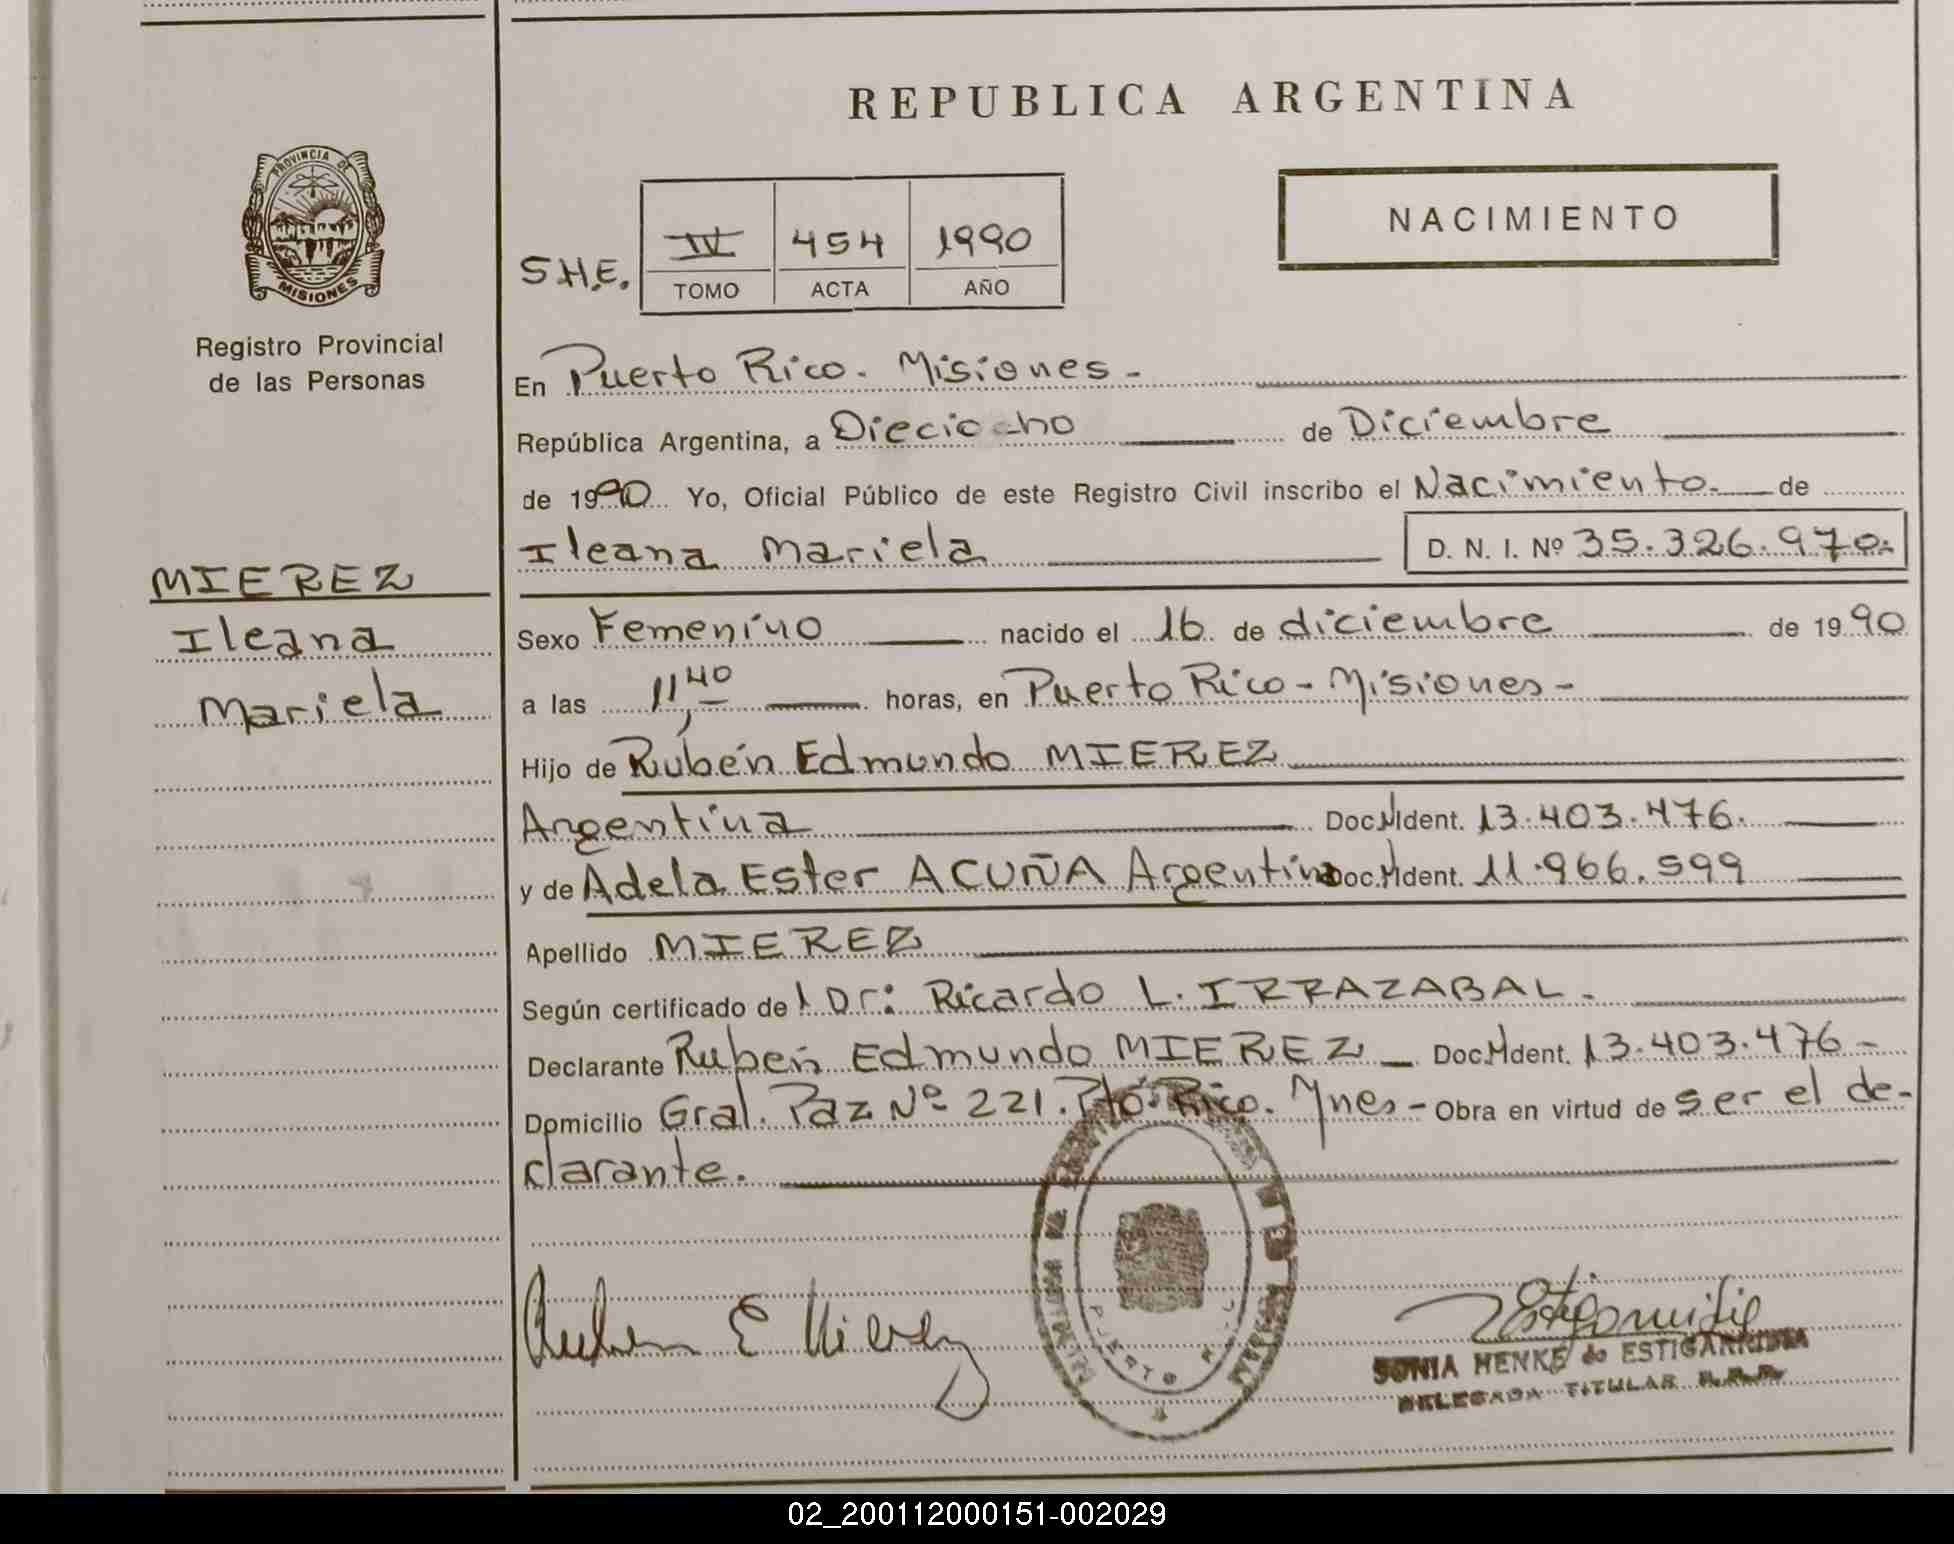 REPUBLICA ARGENTINA
PROVINCIA DE
MISIONES
Registro Provincial
de las Personas
NACIMIENTO
S.H.E.
IV 454 1990
TOMO ACTA AÑO
En Puerto Rico. Misiones -
República Argentina, a Dieciocho de Diciembre
de 1990 Yo, Oficial Público de este Registro Civil inscribo el Nacimiento. de
Ileana Mariela D. N. I. Nº 35.326.970.
MIEREZ
Ileana
Mariela
Sexo Femenino nacido el 16 de diciembre de 1990
a las 11,40 horas, en Puerto Rico - Misiones -
Hijo de Rubén Edmundo MIEREZ
Argentina Doc. Ident. 13.403.476.
y de Adela Ester ACUÑA Argentina Doc. Ident. 11.966.599
Apellido MIEREZ
Según certificado de l Dr: Ricardo L. IRRAZABAL.
Declarante Rubén Edmundo MIEREZ Doc. Ident. 13.403.476 -
Domicilio Gral. Paz Nº 221. Pto. Rico. Mnes - Obra en virtud de ser el de-
clarante.
Ruben E Mierez
PUERTO RICO
SONIA HENKE de ESTIGARRIBIA
DELEGADA TITULAR R.P.P.
02_200112000151-002029